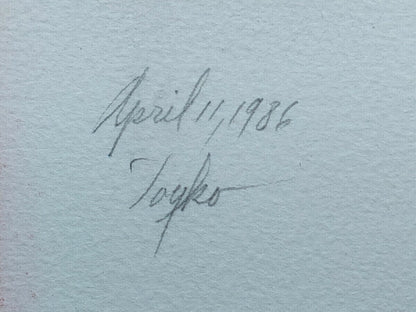 April 11, 1986
Toyko